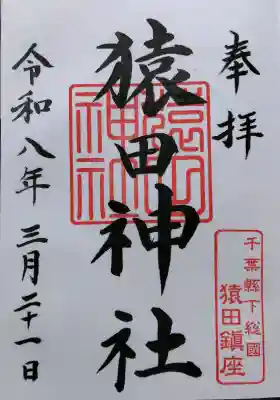 奉拝
猿田神社
令和八年 三月二十一日
猿田神社
千葉縣下総國
猿田鎮座